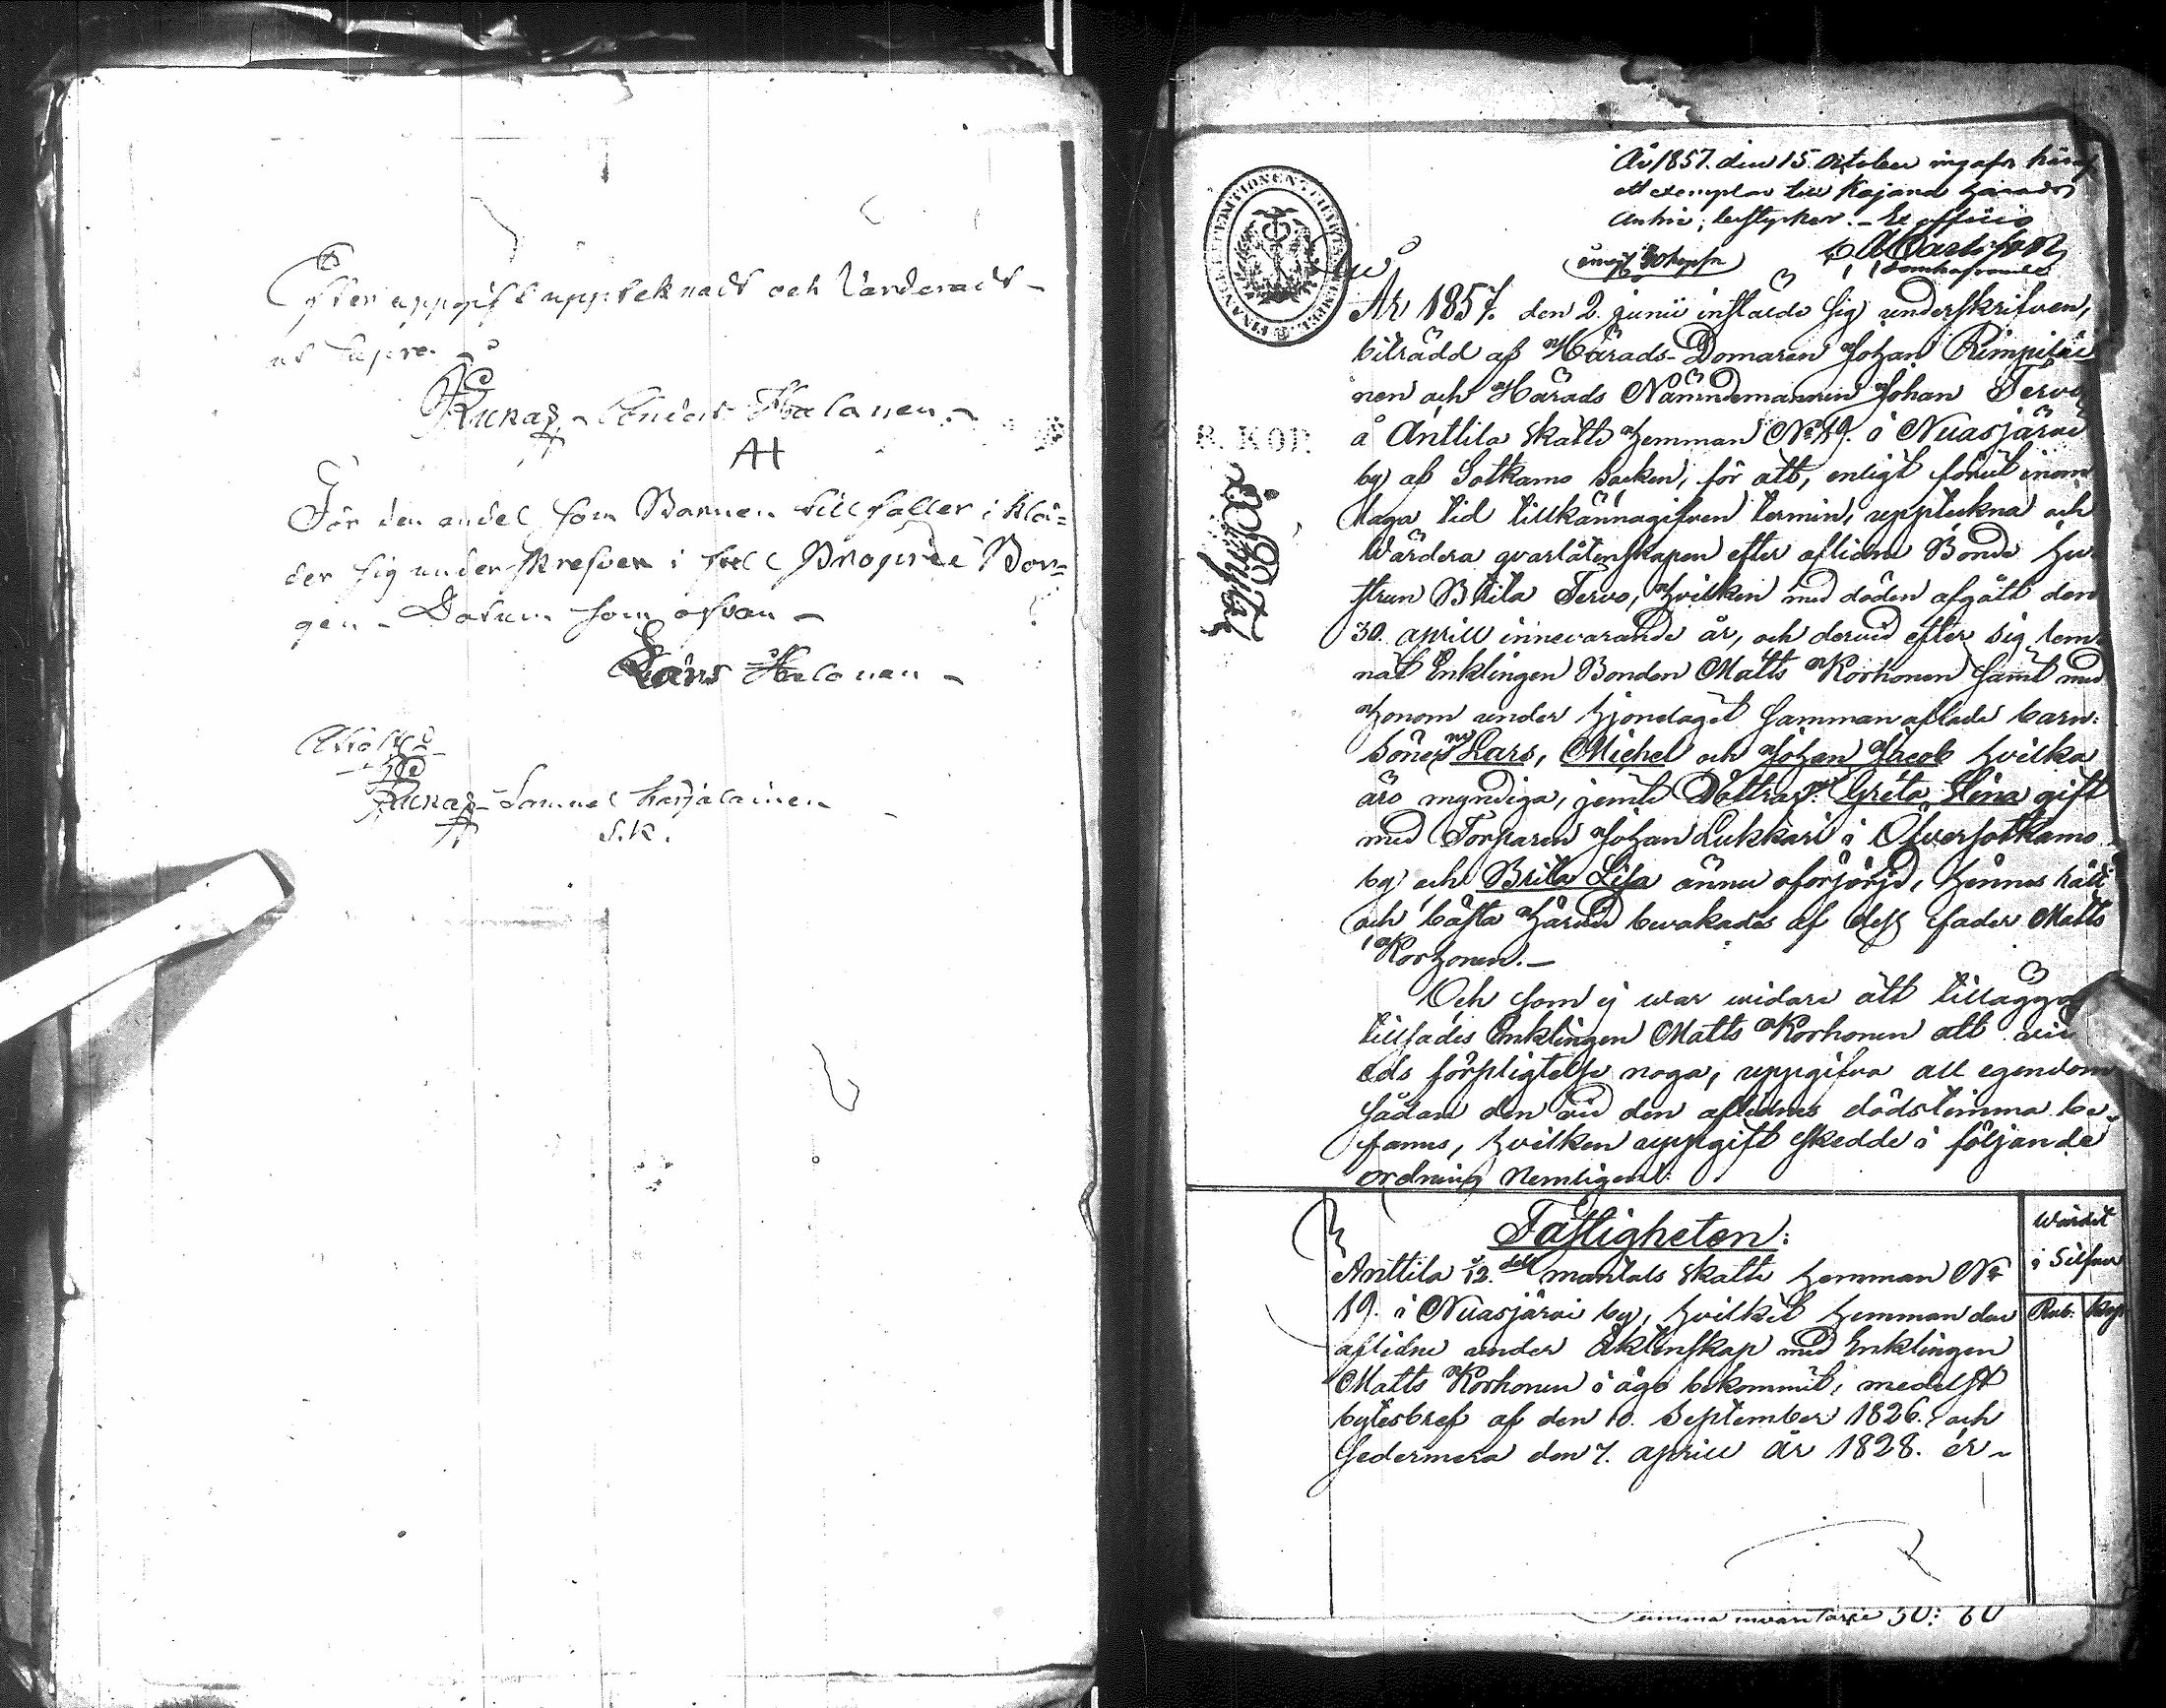 Efter uppgift upptecknadt och Värderadt
ut supra.
Runas Anders Halonen
AH
För den andel som Barnen tillfaller i klä=
der sig underskrefven i full Proprie Bor=
gen. Datum som ofvan
Lars Halonen
Runas Samuel Karjalainen
S.K.
År 1857. den 15. October ingafs häraf
ett exemplar till Kajana Härads
Ex officio
År 1857. den 2. junii instälde sig underskrifven,
biträdd af Härads-Domaren Johan Rimpiläi
nen och Härads Nämndemannen Johan Tervo
å Anttila skatte Hemman No 19. i Nuasjärvi
by af Sotkamo Socken, för att, enligt förut inom
laga tid tillkännagifven termin, uppteckna och
Värdera qvarlåtenskapen efter aflidne Bonde Hu
strun Brita Tervo, hvilken med döden afgått den
30. aprill innevarande år, och dervid efter sig lem
nat Enklingen Bonden Matts Korhonen samt med
honom under hjonelaget sammanaflade barn:
Söner Lars, Michel och Johan Jacob hvilka
äro myndiga, jemte Döttrar: Greta Stina gift
med Torparen Johan Lukkari i Öfversotkamo
by och Brita Lisa ännu oförsörjd, hennes rätt
och bästa härvid bevakades af dess fader Matts
Korhonen.
Och som ej war widare att tillägga
tillsades Enklingen Matts Korhonen att vid
eds förpligtelse noga, uppgifva all egendom
sådan den vid den aflednes dödstimma be
fanns, hvilken uppgift skedde i följande
ordning Nemligen:
Fastigheten:
Wärdet
i Silfver
Rub. Kop.
Anttila 12. dels mantals Skatte Hemman No
19. i Nuasjärvi by, hvilket hemman den
aflidne under Äktenskap med Enklingen
Matts Korhonen i ägo bekommit, medelst
bytesbref af den 10. September 1826. och
sedermera den 7. aprill år 1828. er-
B. KOP.
Summa inventarie 50: 60